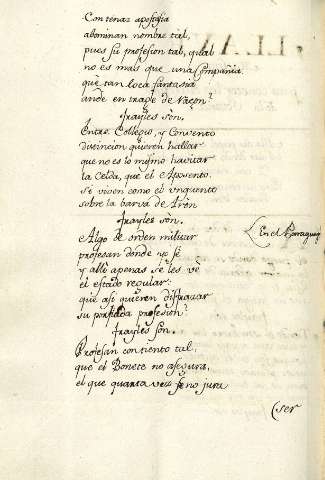 Con tenaz apostasia
abominan nombre tal,
pues su profesion tal, qual
no es mais que una Compañia:
què tan loca fantasia
ande en trage de raçon?
frayles son.
Entre Collegio, y Convento
distincion quieren hallar
que no es lo mismo havitar
la Celda, què el Aposento.
Si viven como el unguento
sobre la barva de Aron
frayles son.
Algo de orden militar
profesan donde yo sè
En el Paraguay
y allì apenas se les vè
el estado regular:
que asi quieren disfraçar
su profesion?
frayles son.
Profesan con tiento tal,
que el Bonete no asegura,
el que quarta vez no jura
(ser